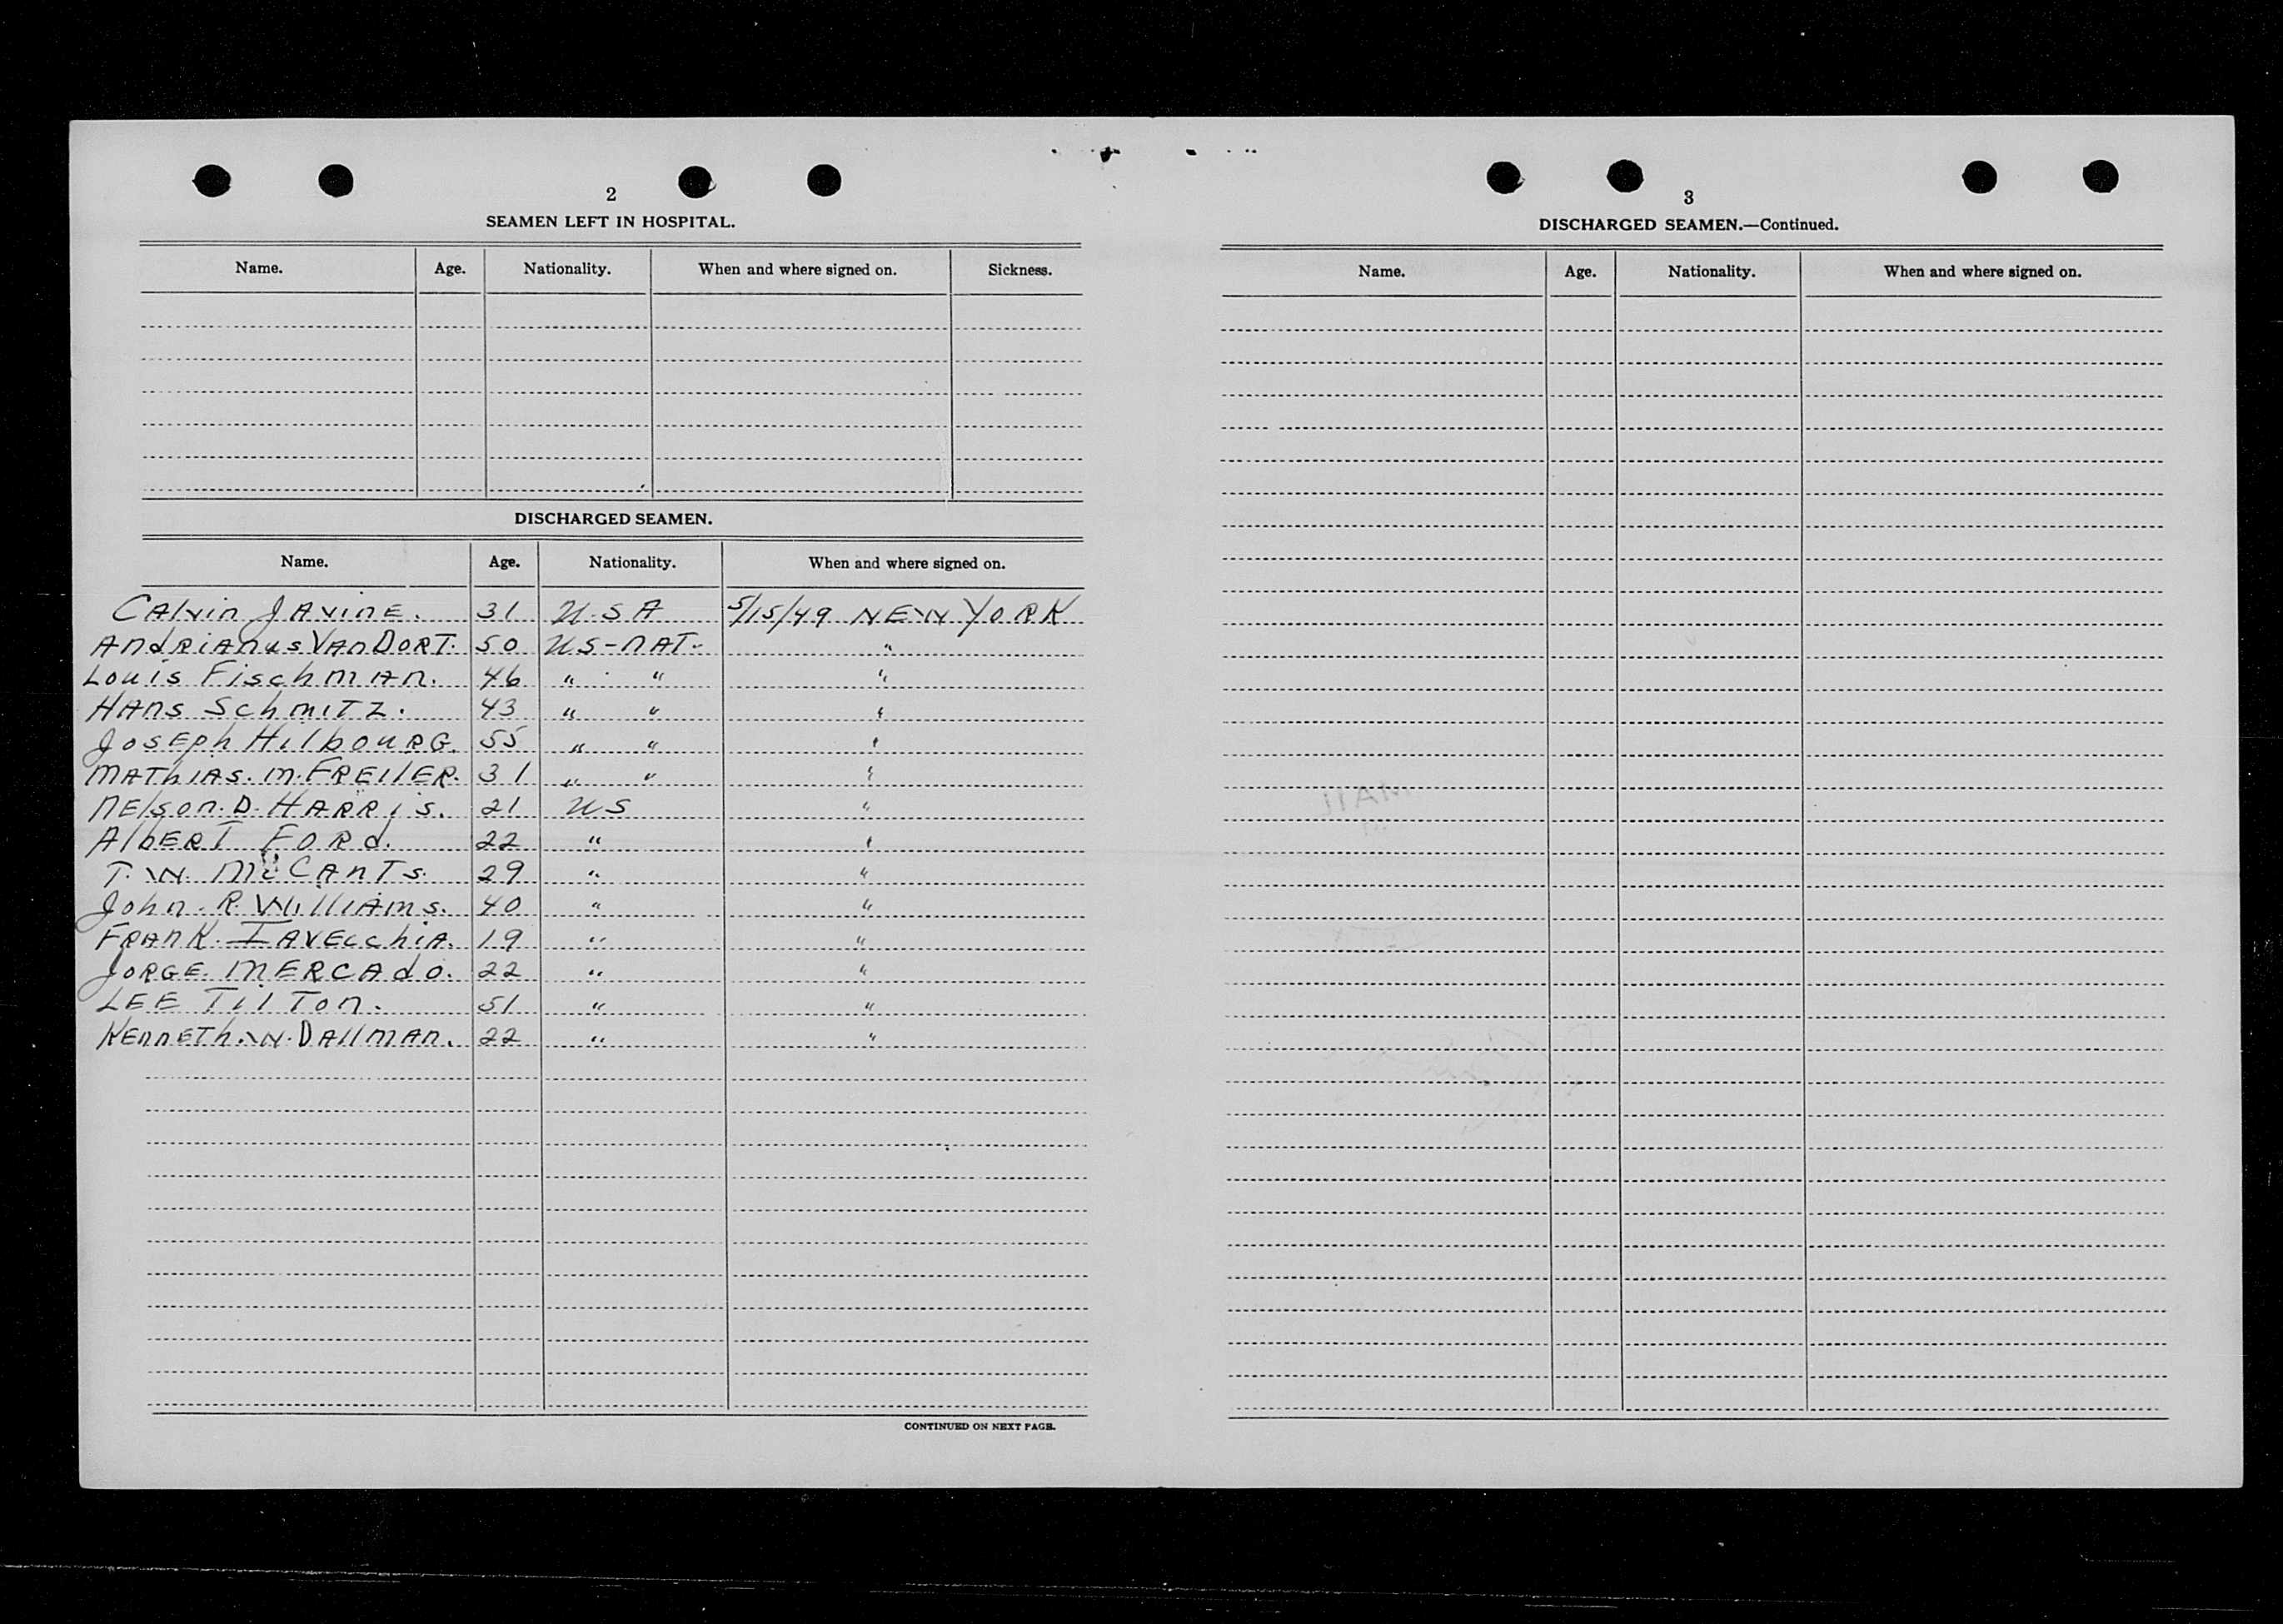 2
SEAMEN LEFT IN HOSPITAL.
Name. Age. Nationality. When and where signed on. Sickness.
DISCHARGED SEAMEN.
Name. Age. Nationality. When and where signed on.
CAlvin JAvinE. 31 U.S A 5/15/49 NEW YORK
AndRiAnus VAn DORT. 50 US-NAT. "
Louis FischmAn. 46 " " "
HAns SchmiTZ. 43 " " "
JosEph HilbouRG. 55 " " "
MATHiAs. M. FREilER. 31 " " "
NElson. D. HARRis. 21 US "
AlbERT FORd. 22 " "
T. W. McCAnTs. 29 " "
John. R. WilliAms. 40 " "
FRAnK. IAvEcchiA. 19 " "
JORGE. MERCAdo. 22 " "
LEE TilTon. 51 " "
KEnnETh. W. DAllmAn. 22 " "
CONTINUED ON NEXT PAGE.
3
DISCHARGED SEAMEN.—Continued.
Name. Age. Nationality. When and where signed on.